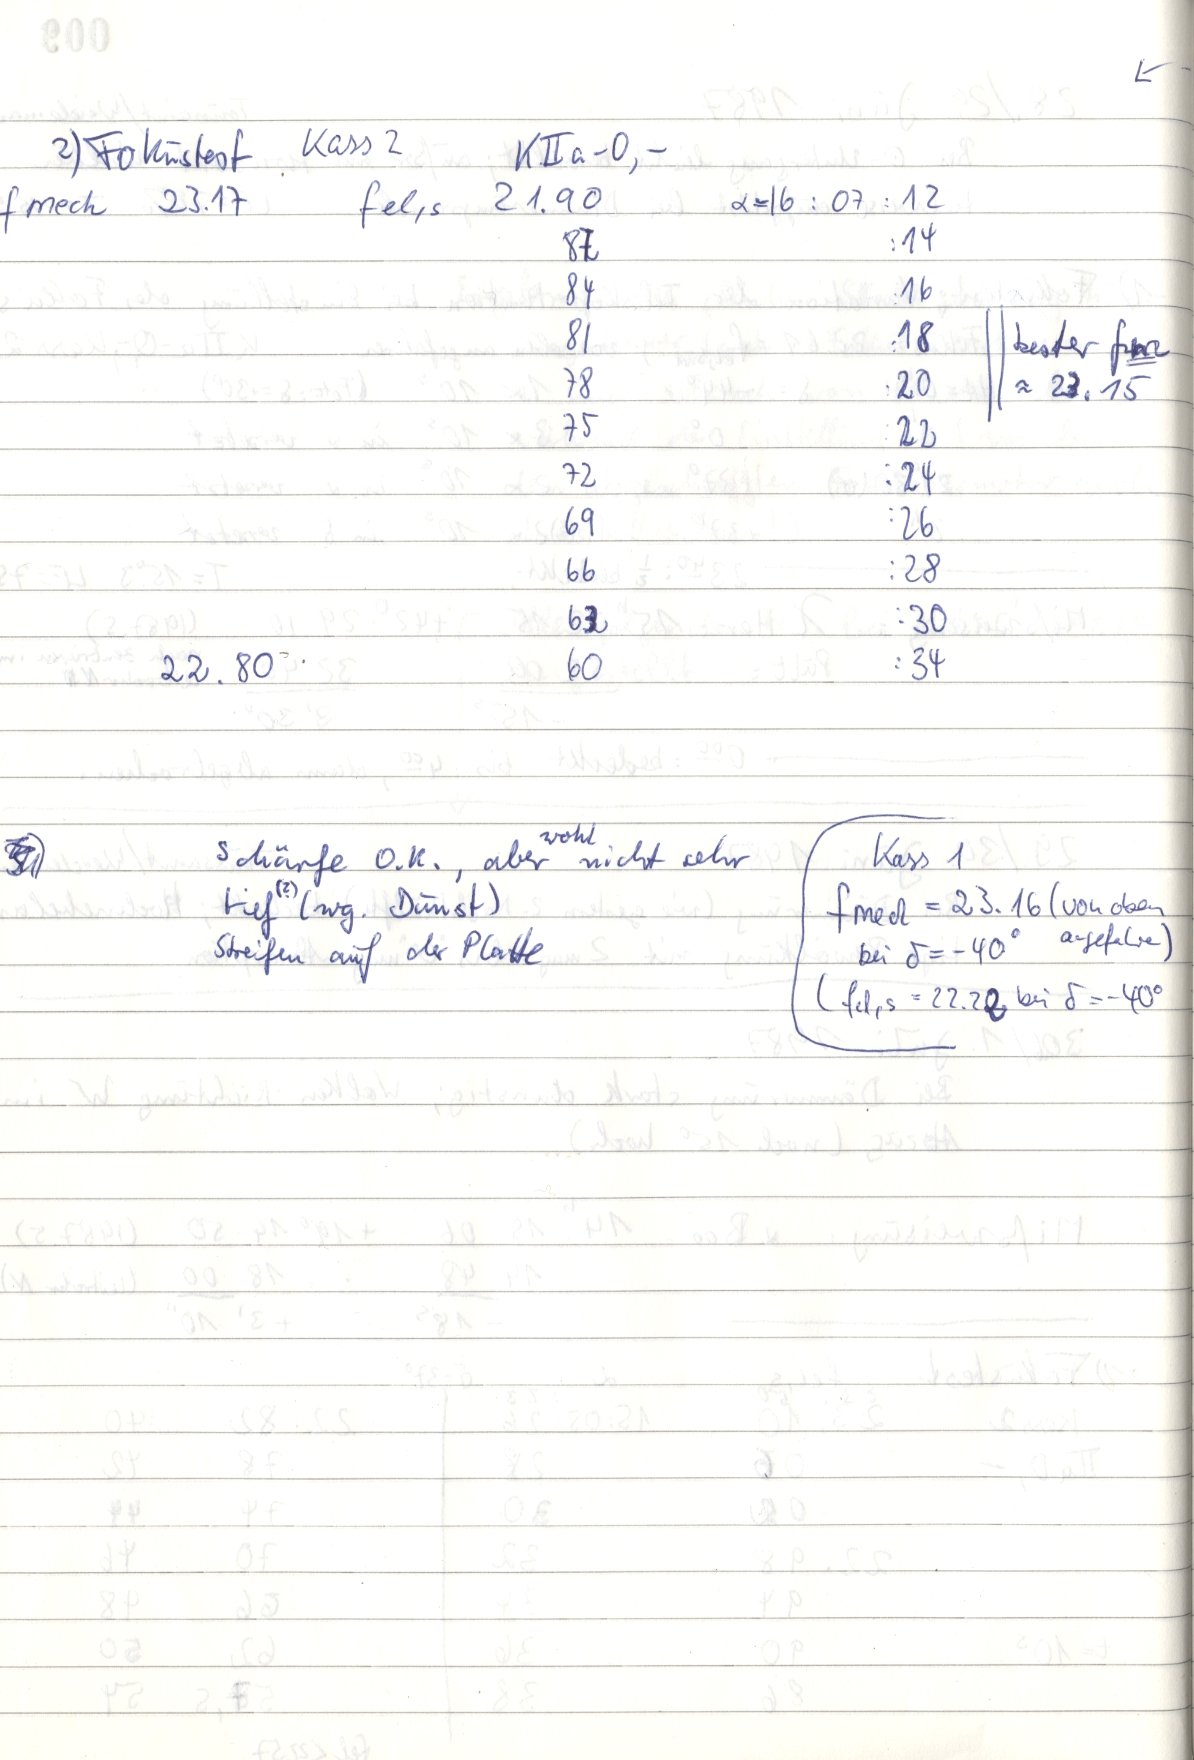 2) Fokustest Kass 2 KIIa-O,-
f mech 23.17 fel,s 21.90 α=16 : 07 : 12
87 :14
84 :16
81 :18
78 :20
75 :22
72 :24
69 :26
66 :28
63 :30
22.80 60 :34
bester fmec
≈ 23.15
Schärfe O.K., aber wohl nicht sehr
tief (?) (wg. Dunst)
Streifen auf der Platte
Kass 1
fmech = 23.16 (von oben
bei δ = -40° angefahren)
(fel,s = 22.22 bei δ = -40°